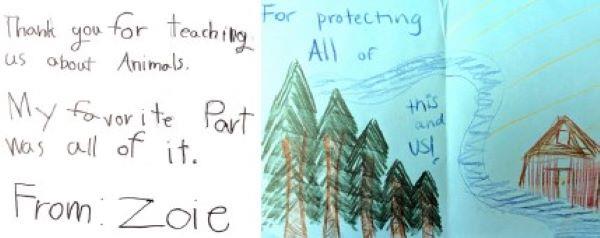 Thank you for teaching
us about Animals.
My favorite Part
was all of it.
From: Zoie
For protecting
All of
this
and
us!